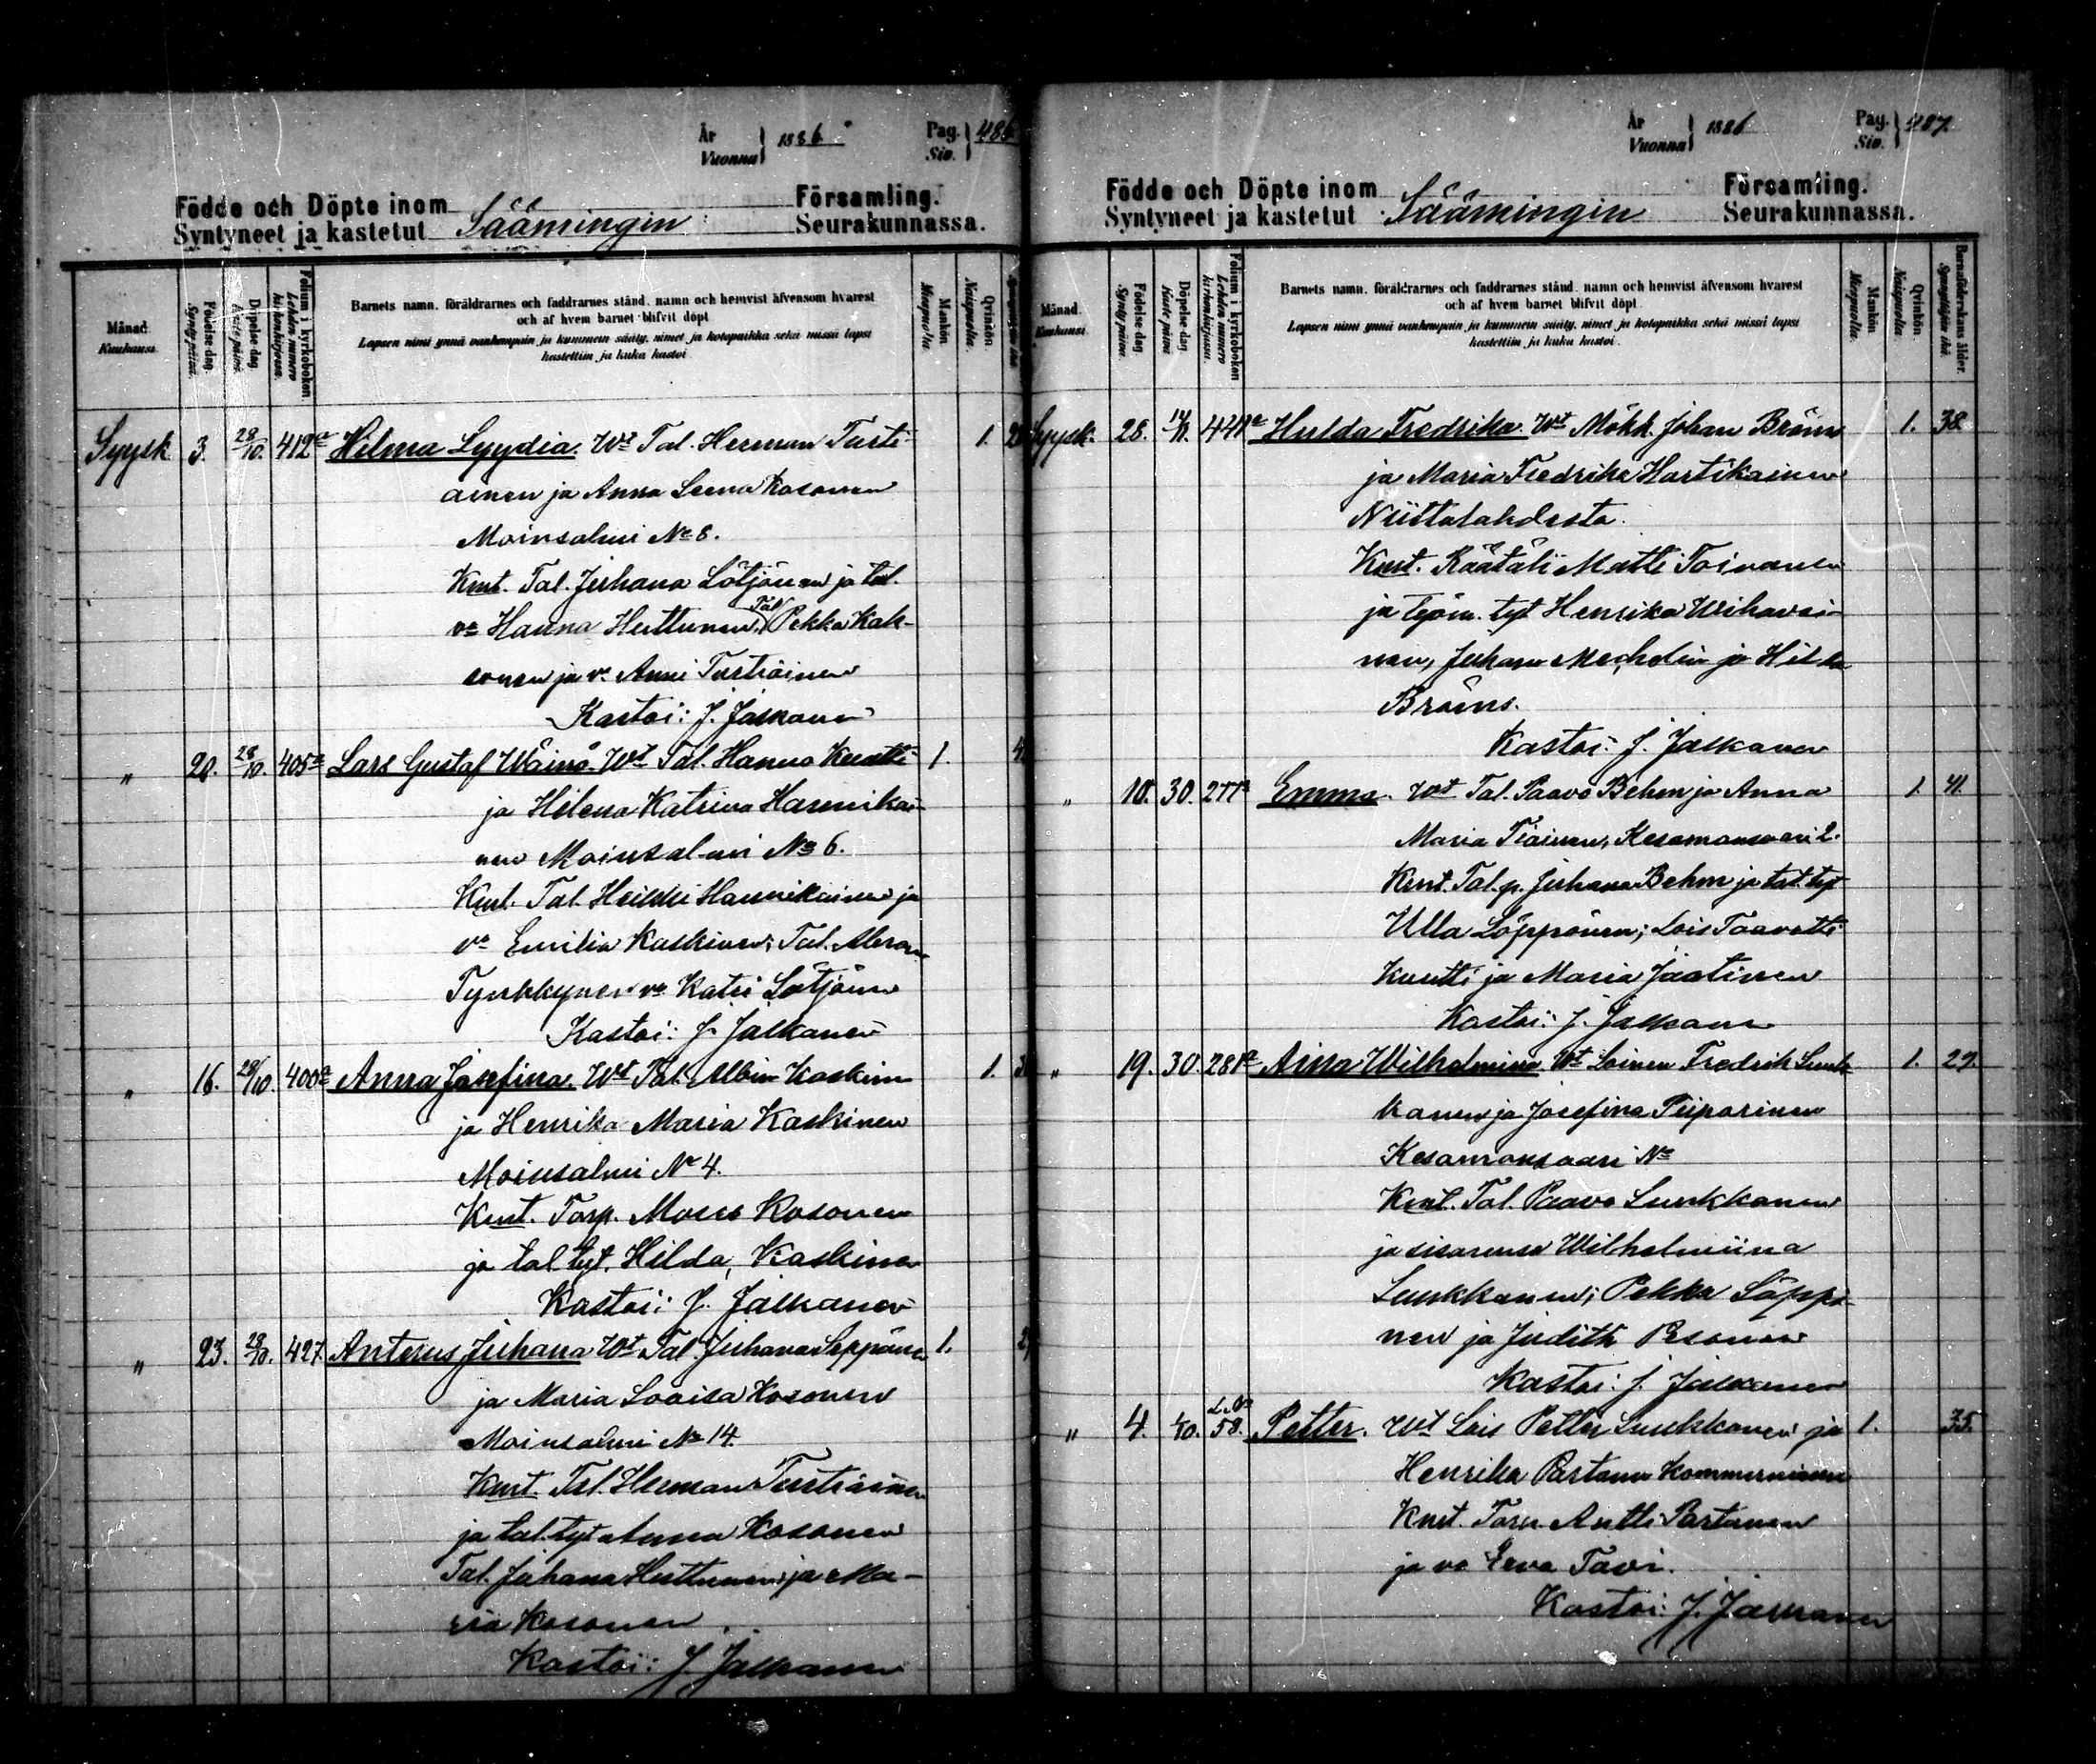 År
Vuonna 1886
Pag.
Siv. 486
Födde och Döpte inom
Syntyneet ja kastetut Säämingin Församling.
Seurakunnassa.
Månad.
Kuukausi.
Födelse dag.
Synty päivä.
Döpelse dag
Kaste päivä
Folium i kyrkoboken
Lehden numero
kirkonkirjassa.
Barnets namn. föräldrarnes och faddrarnes stånd. namn och hemvist äfvensom hvarest
och af hvem barnet blifvit döpt
Lapsen nimi ynnä vanhempain ja kummein sääty, nimet ja kotopaikka sekä missä lapsi
kastettiin ja kuka kastoi.
Mankön
Miespuolta.
Qvinkön.
Naispuolta.
Syysk 3. 28/10. 412a Hilma Lyydia. Wt Tal. Herman Tusti- 1.
ainen ja Anna Leena Kosonen
Moinsalmi No 8.
Kmt. Tal. Juhana Lötjönen ja tal.
vo Hanna Huttunen, Tal. Pekka Kak-
sonen ja vo Anni Tustiainen
Kastoi: J. Jalkanen
„ 20. 28/10. 405a Lars Gustaf Wäinö. Wt Tal. Hannu Kuutti 1.
ja Helena Katrina Hannikai-
nen Moinsalmi No 6.
Kmt. Tal. Heikki Hannikainen ja
vo Emilia Kaskinen; Tal.
Tynkkynen vo Katri Lötjönen
Kastoi: J. Jalkanen
„ 16. 28/10. 400a Anna Josefina. Wt Tal. Albin Kaskinen 1.
ja Henrika Maria Kaskinen
Moinsalmi No 4.
Kmt. Torp. Moses Kosonen
ja tal. tyt. Hilda Kaskinen
Kastoi: J. Jalkanen
„ 23. 28/10. 427. Anterus Juhana Wt Tal. Juhana Seppänen 1.
ja Maria Loviisa Kosonen
Moinsalmi No 14.
Kmt. Tal. Herman Tustiainen
ja tal. tyt Anna Kosonen
Tal. Juhana Huttunen ja Ma-
ria Kosonen
Kastoi: J. Jalkanen
År
Vuonna 1886
Pag.
Siv. 487.
Födde och Döpte inom
Syntyneet ja kastetut Säämingin Församling.
Seurakunnassa.
Månad.
Kuukausi.
Födelse dag.
Synty päivä.
Döpelse dag.
Kaste päivä
Folium i kyrkoboken
Lehden numero
kirkonkirjassa.
Barnets namn. föräldrarnes och faddrarnes stånd. namn och hemvist äfvensom hvarest
och af hvem barnet blifvit döpt.
Lapsen nimi ynnä vanhempain ja kummein sääty, nimet ja kotopaikka sekä missä lapsi
kastettiin ja kuka kastoi.
Mankön
Miespuolta.
Qvinkön.
Naispuolta.
Barnaföderskans ålder.
Synnyttäjän ikä.
Syysk. 28. Hulda Fredrika. Wt Mökk. Johan Bröms 1. 38.
ja Maria Fredrika Hartikainen
Niittolahdesta.
Kmt. Räätäli Matti Toivanen
ja työm. tyt Henrika Wihavai-
nen, Juhana Mechelin ja Hilda
Bröms.
Kastoi: J. Jalkanen
„ 10. 30. 277a Emma. Wt Tal. Paavo Behm ja Anna 1. 41.
Maria Tiainen, Kesamonsaari 2.
Kmt. Tal. p. Juhana Behm ja tal. tyt
Ulla Löppönen; Lois Taavetti
Kuutti ja Maria Jäätinen
Kastoi: J. Jalkanen
„ 19. 30. 281a Aina Wilhelmina. Wt Loinen Fredrik Luuk- 1. 29.
kanen ja Josefina Piiparinen
Kesamonsaari No
Kmt. Tal. Paavo Luukkanen
ja sisarensa Wilhelmiina
Luukkanen; Pekka Löppö-
nen ja Judith Pesonen
Kastoi: J. Jalkanen
„ 4. 58. Petter. Wt Lois Petter Luukkanen ja 1. 35.
Henrika Partanen Kommerniemi
Kmt. Torp. Antti Partanen
ja vo Eeva Tavi.
Kastoi: J. Jalkanen